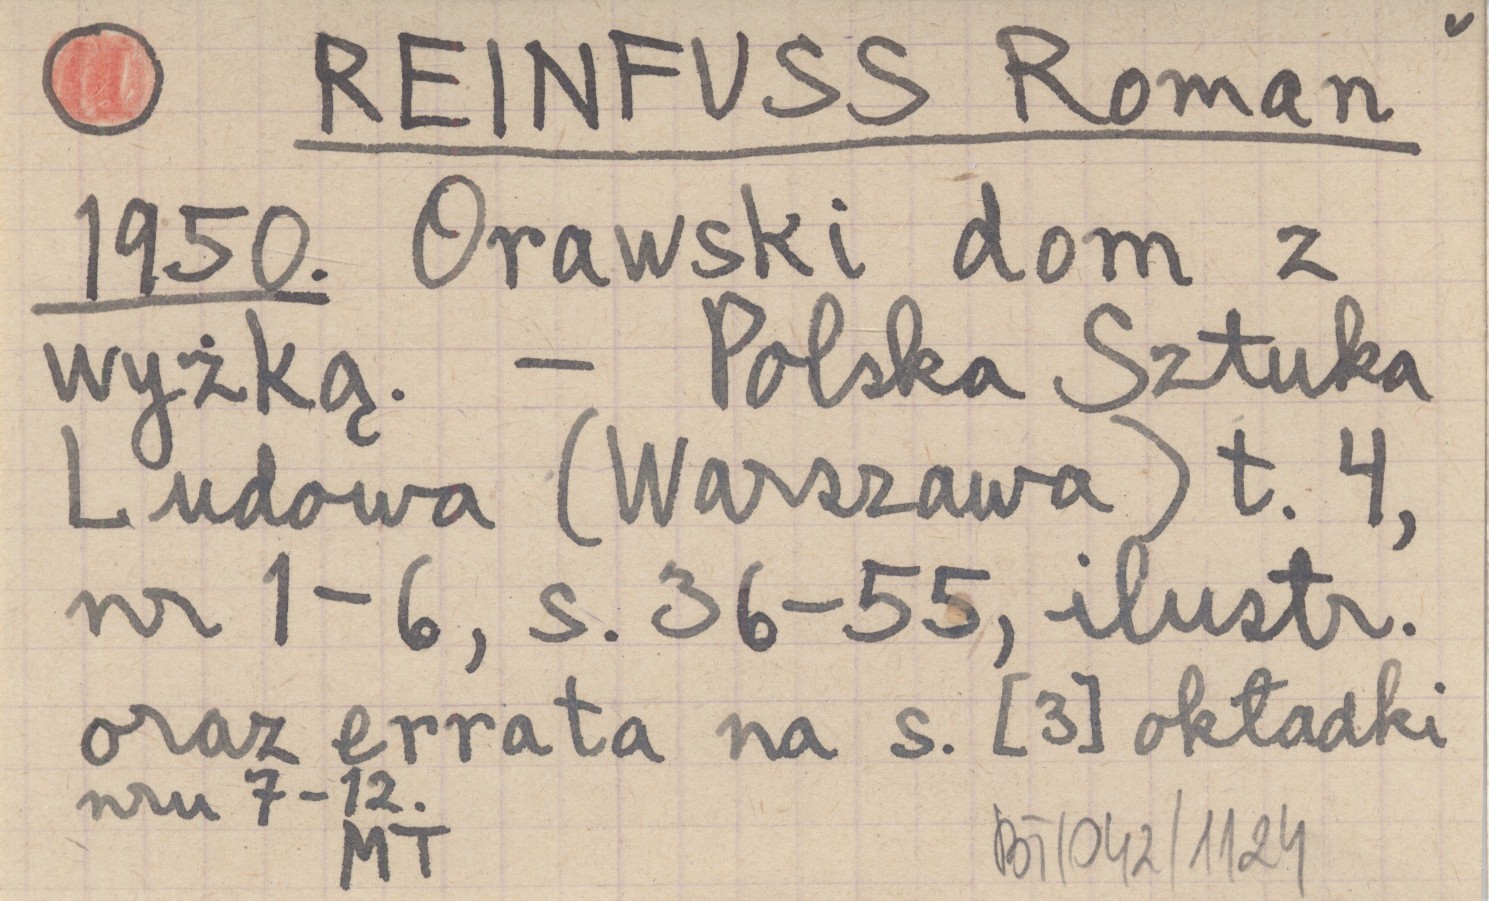 REINFUSS Roman
1950. Orawski dom z
wyżką. – Polska Sztuka
Ludowa (Warszawa) t. 4,
nr 1–6, s. 36–55, ilustr.
oraz errata na s. [3] okładki
nru 7–12.
MT
BT/042/1124